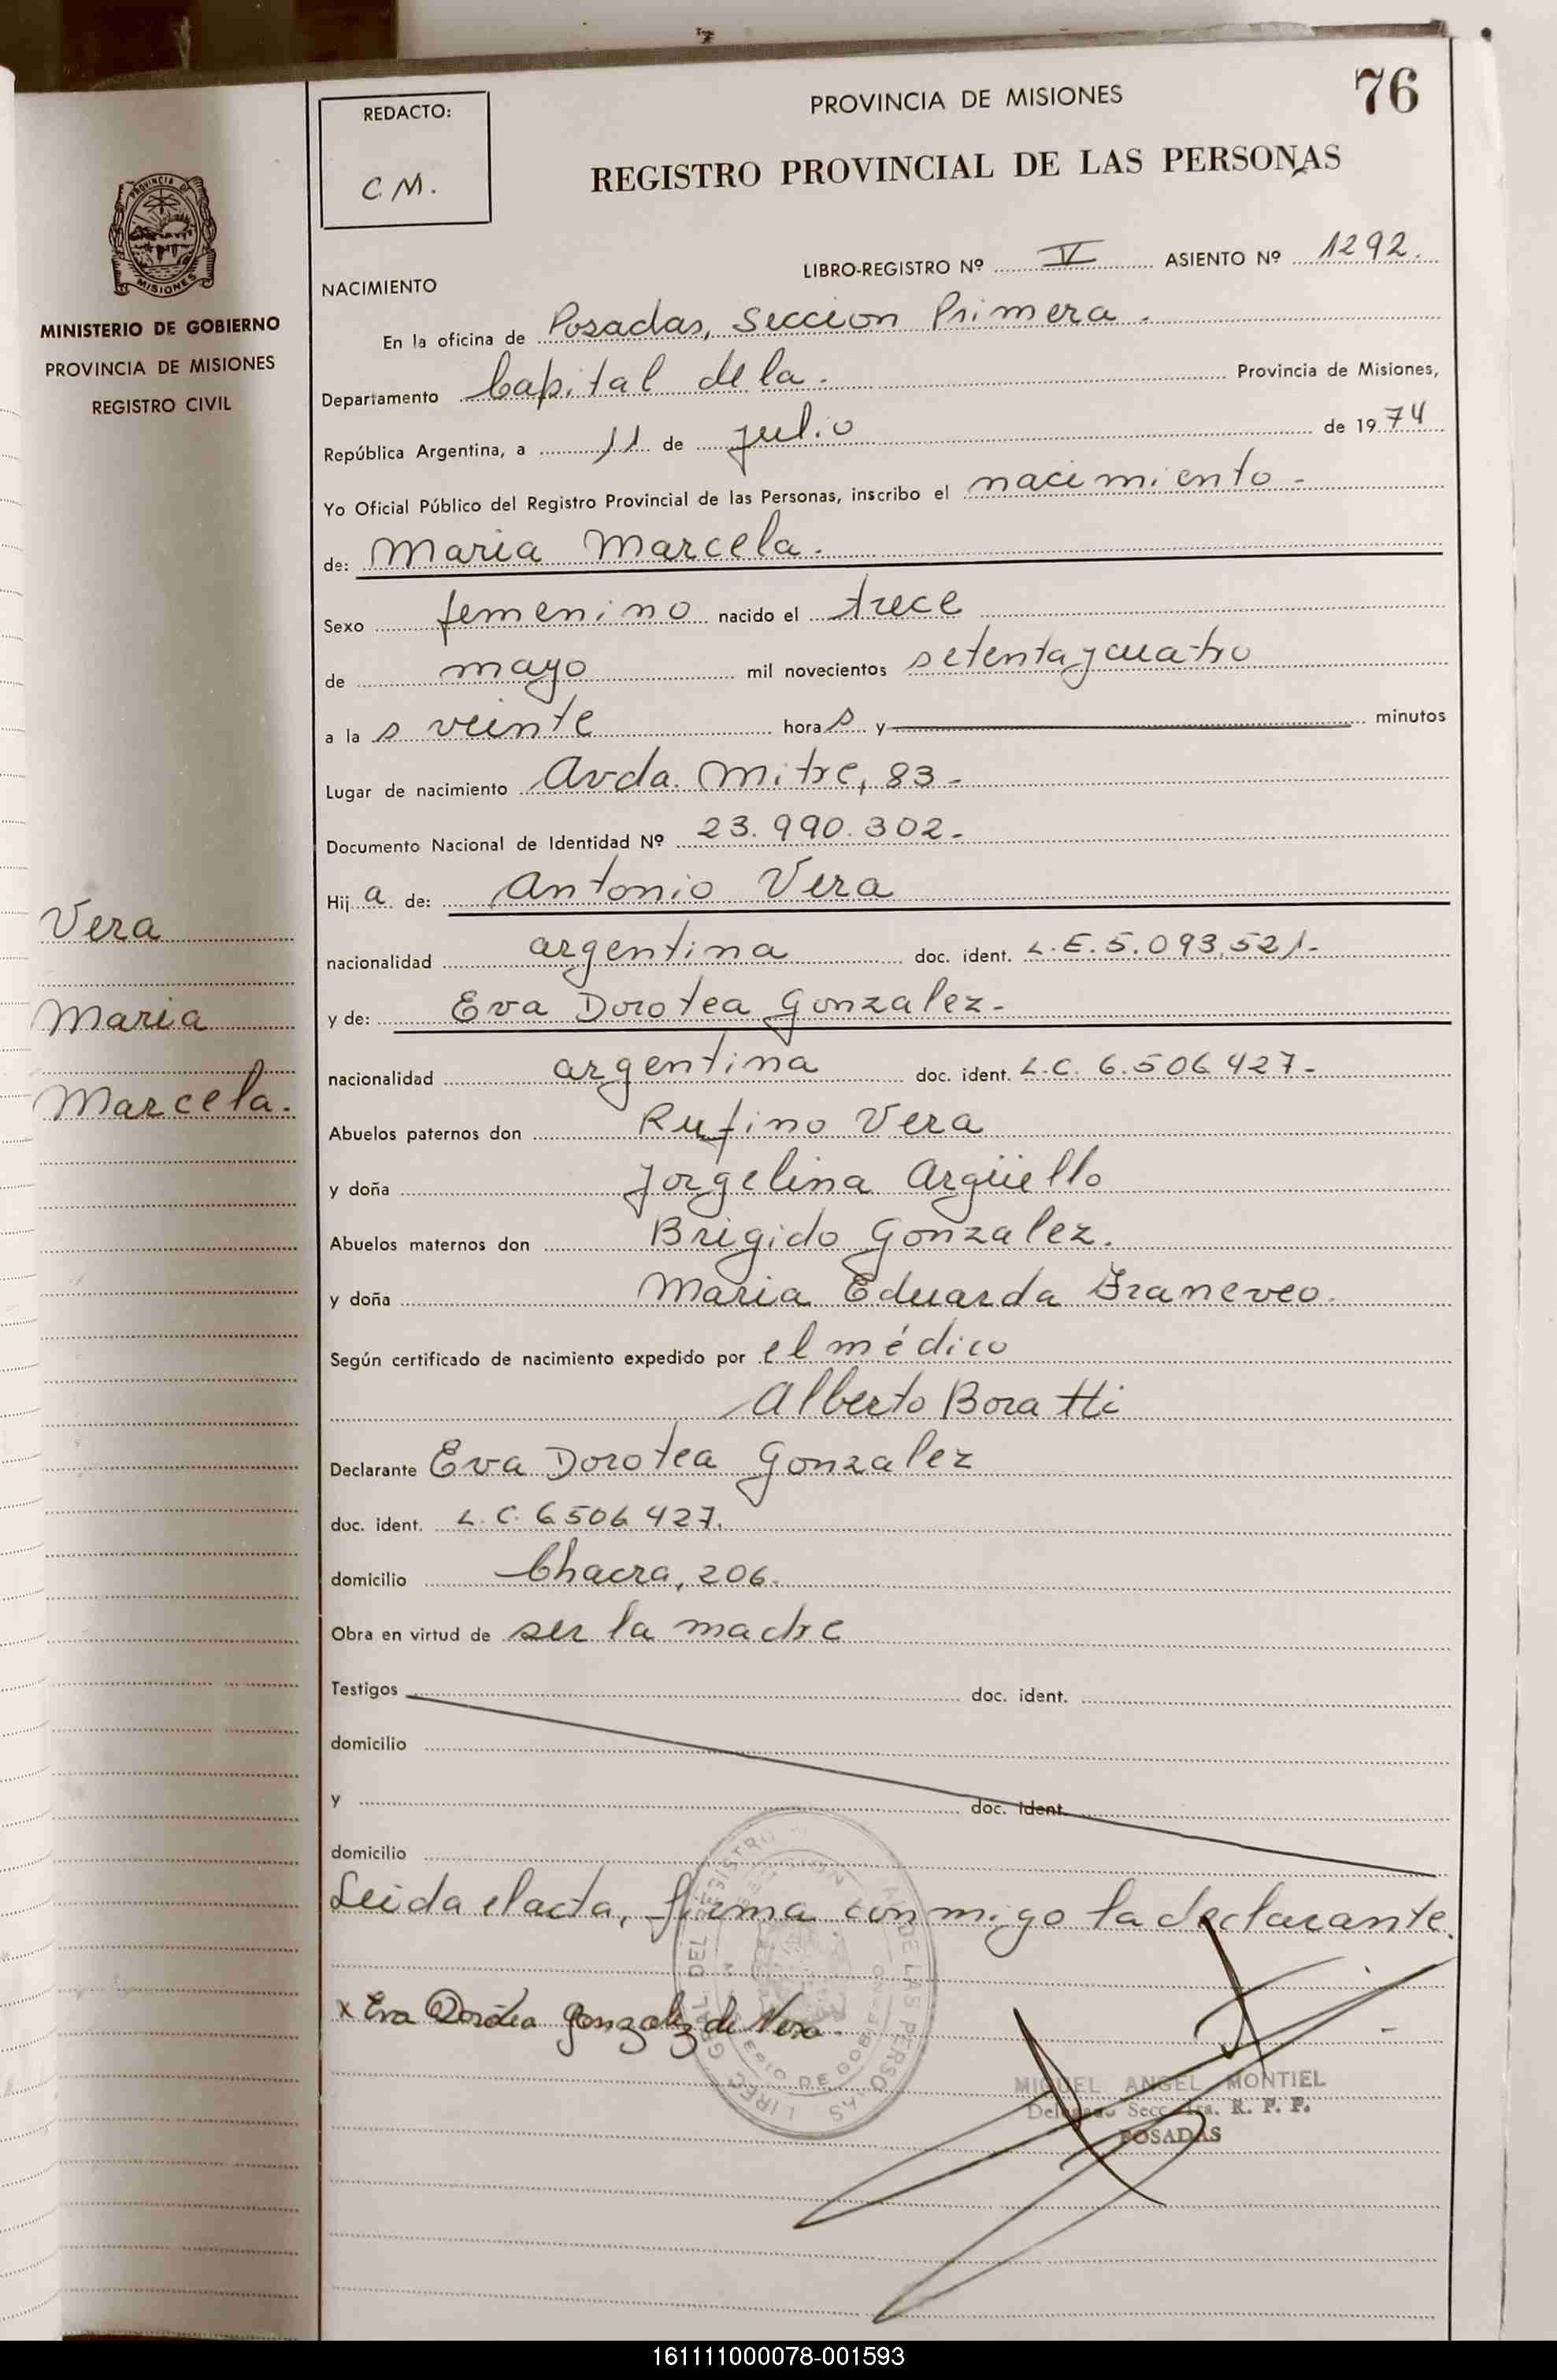 76
REDACTO:
C.M.
PROVINCIA DE MISIONES
REGISTRO PROVINCIAL DE LAS PERSONAS
PROVINCIA DE
MISIONES
MINISTERIO DE GOBIERNO
PROVINCIA DE MISIONES
REGISTRO CIVIL
LIBRO-REGISTRO Nº V ASIENTO Nº 1292.
NACIMIENTO
En la oficina de Posadas, Seccion Primera.
Departamento Capital de la. Provincia de Misiones,
República Argentina, a 11 de julio de 1974
Yo Oficial Público del Registro Provincial de las Personas, inscribo el nacimiento-
de: Maria Marcela.
Sexo femenino nacido el trece
de mayo mil novecientos setenta y cuatro
a las veinte horas y minutos
Lugar de nacimiento Avda. Mitre, 83-
Documento Nacional de Identidad Nº 23.990.302-
Hija de: Antonio Vera
nacionalidad argentina doc. ident. L.E. 5.093.521-
y de: Eva Dorotea Gonzalez-
nacionalidad argentina doc. ident. L.C. 6.506.427-
Abuelos paternos don Rufino Vera
y doña Jorgelina Argüello
Abuelos maternos don Brigido Gonzalez.
y doña Maria Eduarda
Según certificado de nacimiento expedido por el médico
Alberto Boratti
Declarante Eva Dorotea Gonzalez
doc. ident. L.C. 6506427.
domicilio Chacra, 206.
Obra en virtud de ser la madre
Testigos doc. ident.
domicilio
y doc. ident.
domicilio
Leida el acta, firma conmigo la declarante.
x Eva Dorotea Gonzalez de Vera.
MIGUEL ANGEL MONTIEL
Delegado Secc. 1ra. R. P. P.
POSADAS
Vera
Maria
Marcela.
161111000078-001593